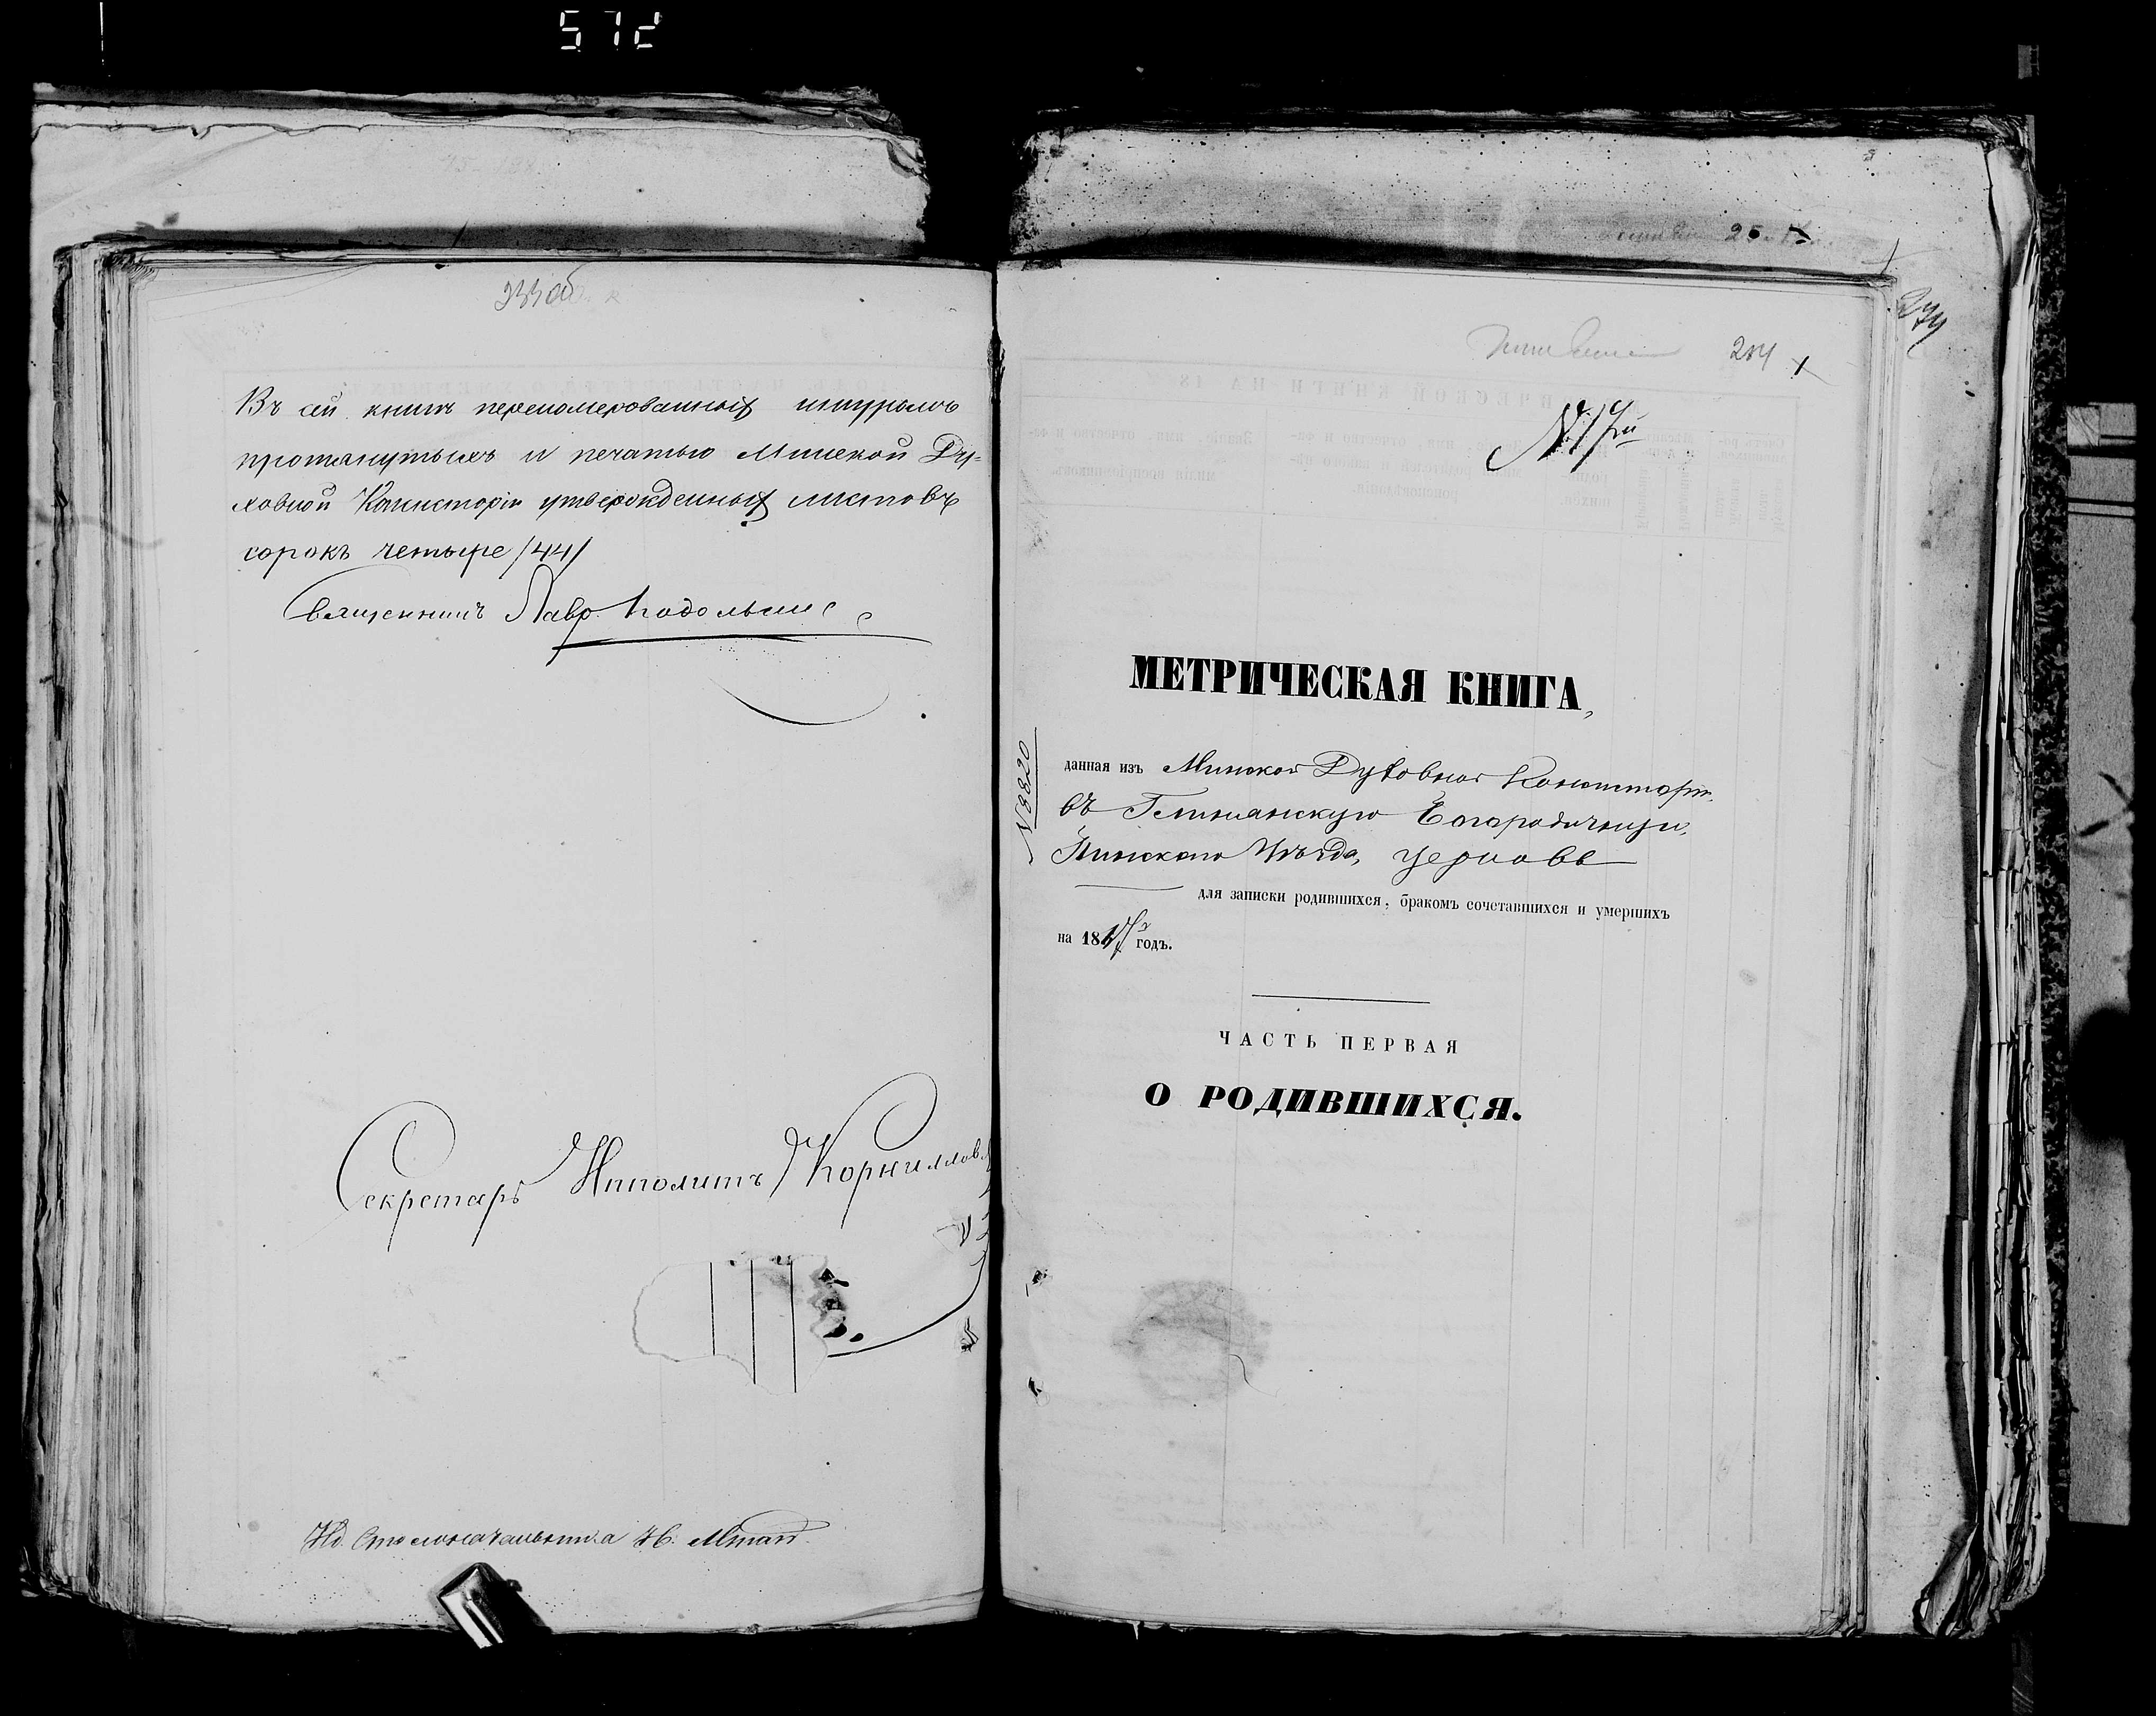 572
233 об
Въ сей книгѣ перенумерованныхъ шнуромъ
протянутыхъ и печатью Минской Ду-
ховной Консисторіи утвержденныхъ листовъ
сорокъ четыре /44/
Священникъ Лавр. Подольскі
Секретарь Ипполитъ Корниллов
Ид. Столоначальника Н.
234
МЕТРИЧЕСКАЯ КНИГА,
№ 8820
данная изъ Минской Духовной Консисторіи
въ Богородичную
Пинскаго Уѣзда, церковь
для записки родившихся, бракомъ сочетавшихся и умершихъ
на 18 годъ.
ЧАСТЬ ПЕРВАЯ
О РОДИВШИХСЯ.